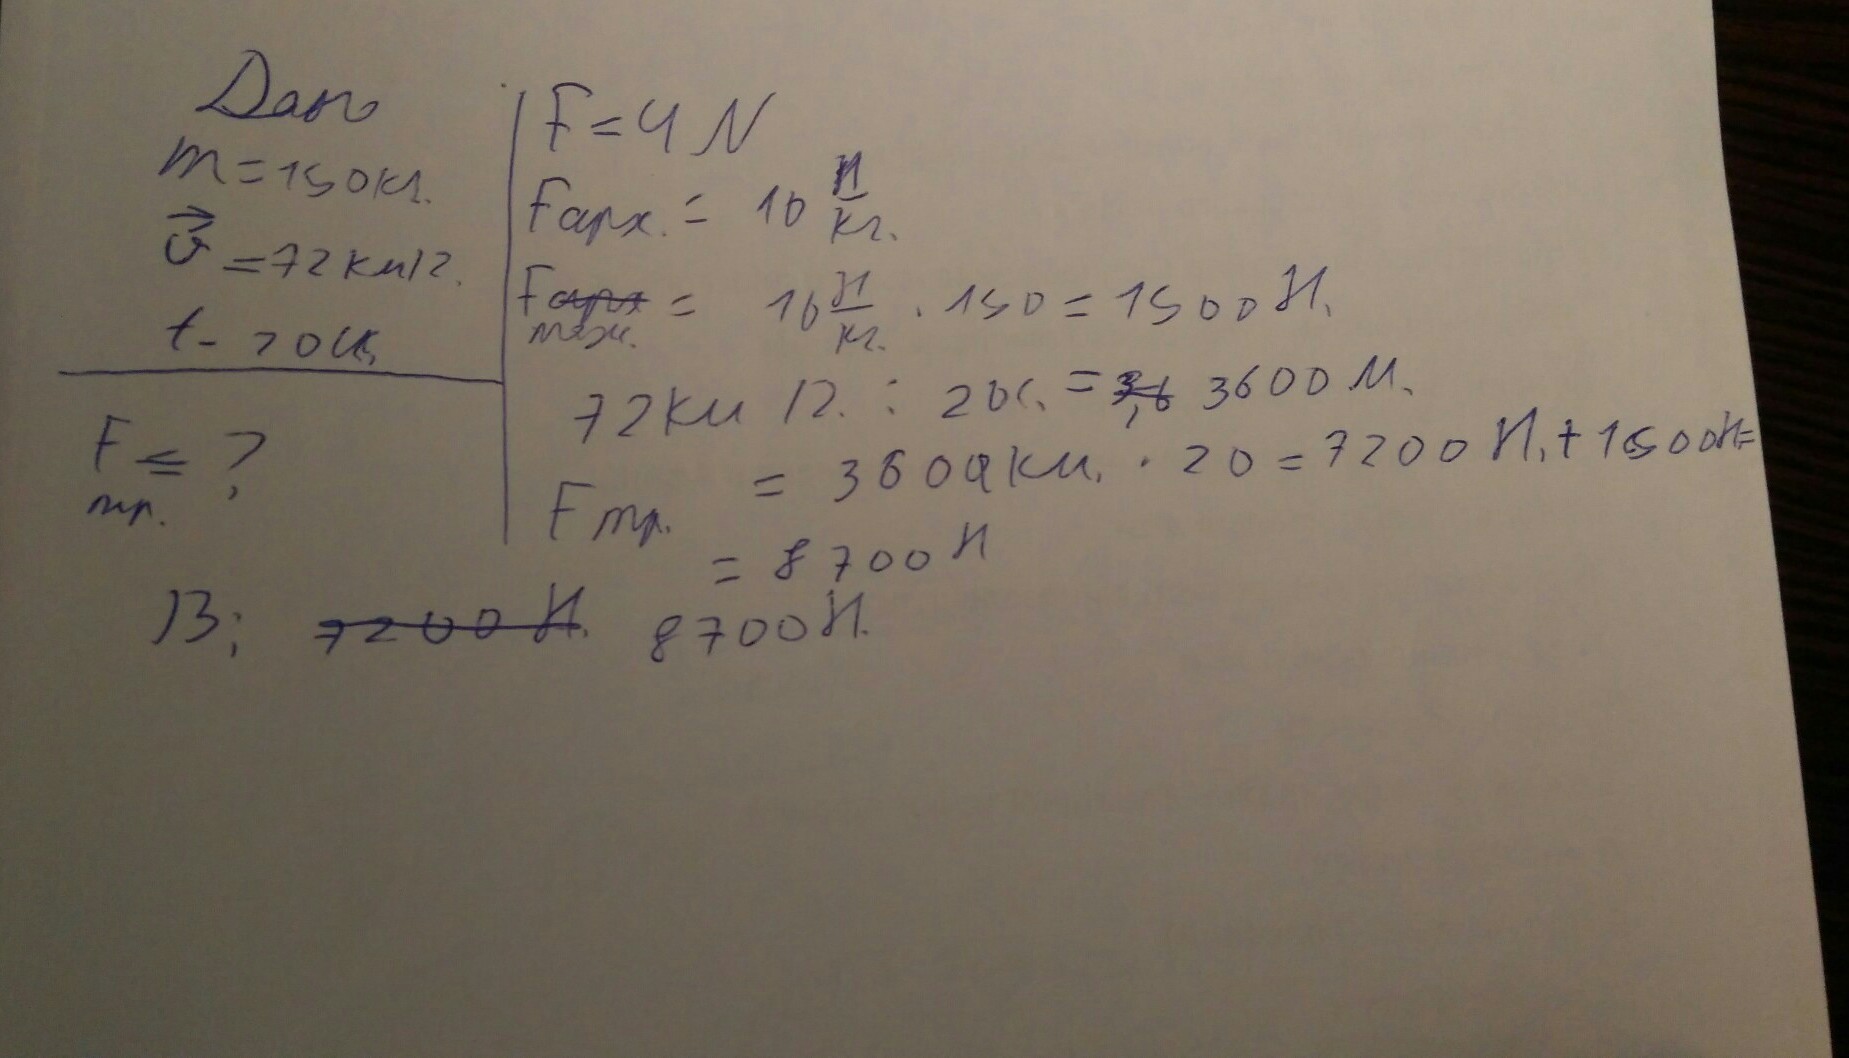 Дано
m=150кг.
v=72км/г.
t-20с.
F тр. = ?
F=ЧN
Fарх. = 10 Н/кг.
Fтяж. = 10 Н/кг. · 150=1500Н.
72км /г. : 20с. = 3600 м.
F тр. = 3600км. · 20=7200 Н.+1500Н=
= 8700Н
В; 7200 Н. 8700Н.